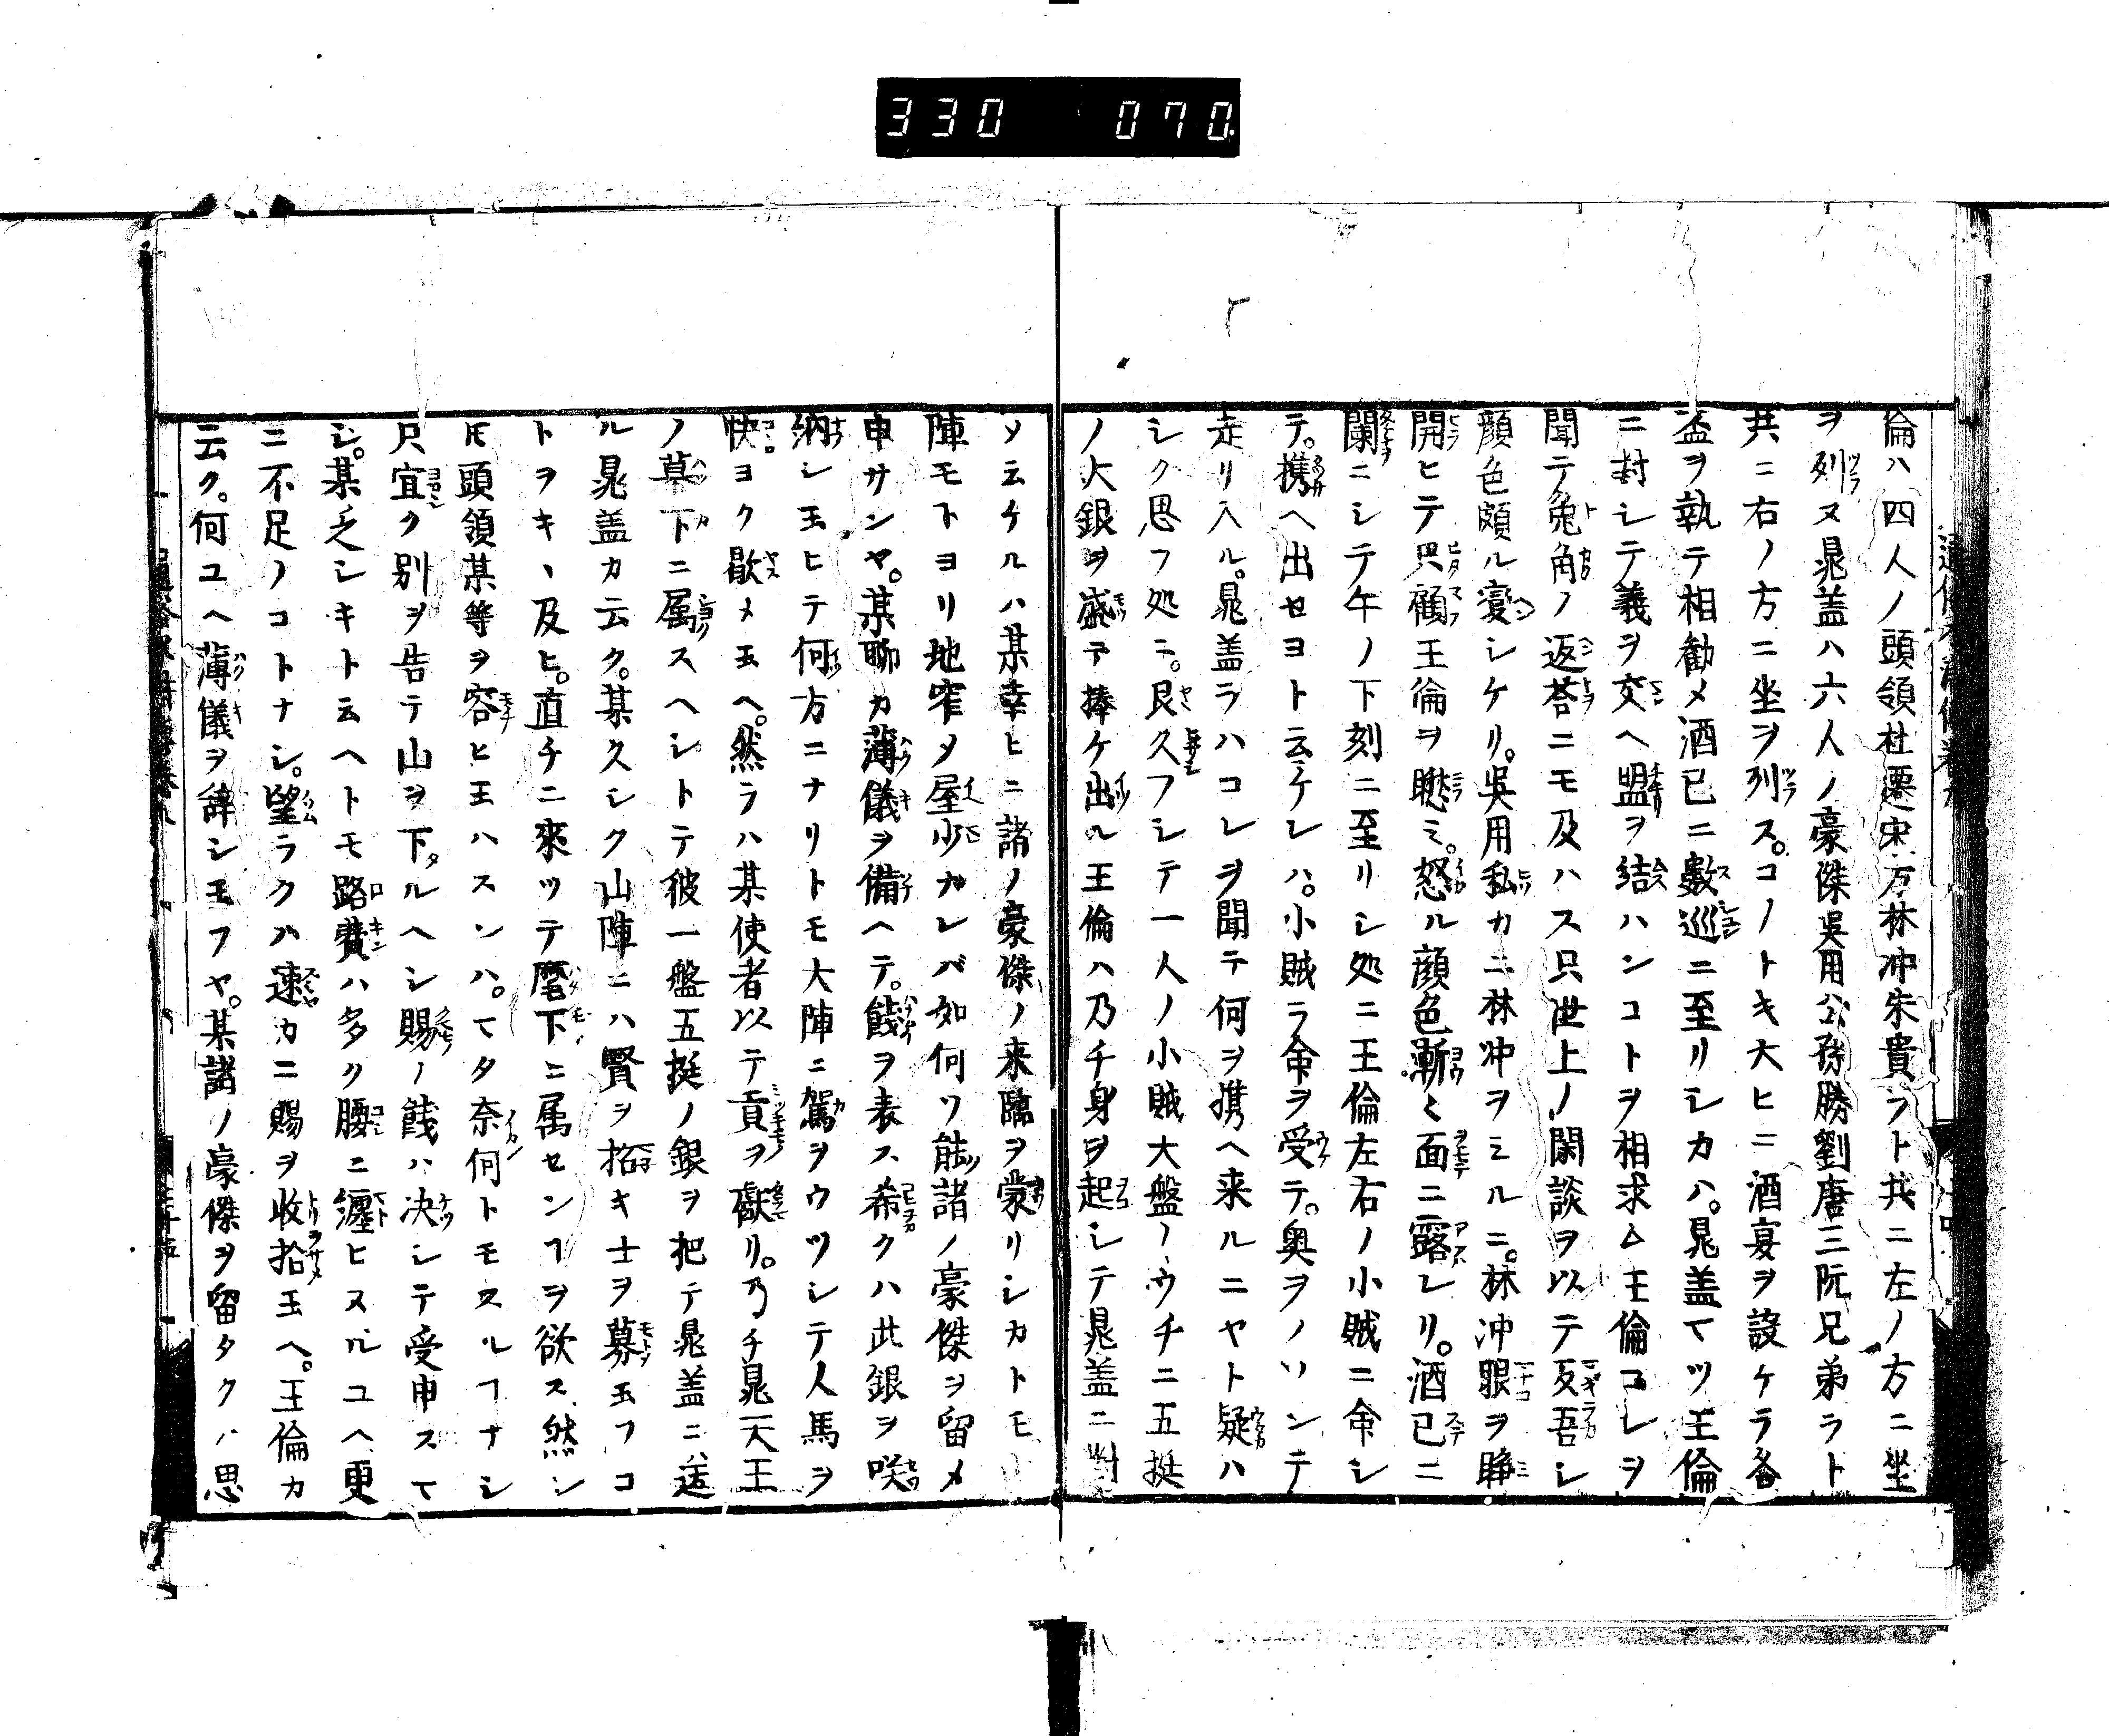 330 070
倫ハ四人ノ頭領杜遷宋万林冲朱貴ラト共ニ左ノ方ニ坐
ヲ列ヌ晁盖ハ六人ノ豪傑吳用公孫勝劉唐三阮兄弟ラト
共ニ右ノ方ニ坐ヲ列ス。コノトキ大ヒニ酒宴ヲ設ケラ各
盃ヲ執テ相勧メ酒已ニ數巡ニ至リシカハ。晁盖マツ王倫
ニ對シテ義ヲ交ヘ盟ヲ結ハンコトヲ相求ム王倫コレヲ
聞テ兔角ノ返荅ニモ及ハス只世上ノ閑談ヲ以テ支吾シ
顔色頗ル変シケリ。吳用私カニ林冲ヲミルニ。林冲眼ヲ睁
開ヒテ只顧王倫ヲ瞅ミ。怒ル顔色漸〻面ニ露レリ。酒已ニ
闌ニシテ午ノ下刻ニ至リシ処ニ王倫左右ノ小賊ニ命シ
テ。携ヘ出セヨト云ケレハ。小賊ラ命ヲ受テ。奥ヲノソンテ
走リ入ル。晁盖ラハコレヲ聞テ何ヲ携ヘ来ルニヤト疑ハ
シク思フ処ニ。良久フシテ一人ノ小賊大盤ノウチニ五挺
ノ大銀ヲ盛テ捧ケ出ル王倫ハ乃チ身ヲ起シテ晁盖ニ對
ソ云ケルハ某幸ヒニ諸ノ豪傑ノ来臨ヲ蒙リシカトモ
陣モトヨリ地窄メ屋少ナレバ如何ソ能諸ノ豪傑ヲ留メ
申サンヤ。某聊カ薄儀ヲ備ヘテ。餞ヲ表ス希クハ此銀ヲ咲
納シ玉ヒテ何方ニナリトモ大陣ニ駕ヲウツシテ人馬ヲ
快ヨク歇メ玉ヘ。然ラハ某使者以テ貢ヲ獻リ。乃チ晁天王
ノ草下ニ属スヘシトテ彼一盤五挺ノ銀ヲ把テ晁盖ニ送
ル晁盖カ云ク。某久シク山陣ニハ賢ヲ招キ士ヲ募玉フコ
トヲキヽ及ヒ。直チニ來ツテ麾下ニ属センヿヲ欲ス、然シ
𪜈頭領某等ヲ容ヒ玉ハスンハ。マタ奈何トモスルヿナシ
只宜ク別ヲ告テ山ヲ下ルヘシ賜ノ餞ハ决シテ受申スマ
シ。某乏シキト云ヘトモ路費ハ多ク腰ニ纏ヒヌルユヘ更
ニ不足ノコトナシ。望ラクハ速カニ賜ヲ收拾玉ヘ。王倫カ
云ク。何ユヘ薄儀ヲ辞シ玉フヤ。某諸ノ豪傑ヲ留タクハ思